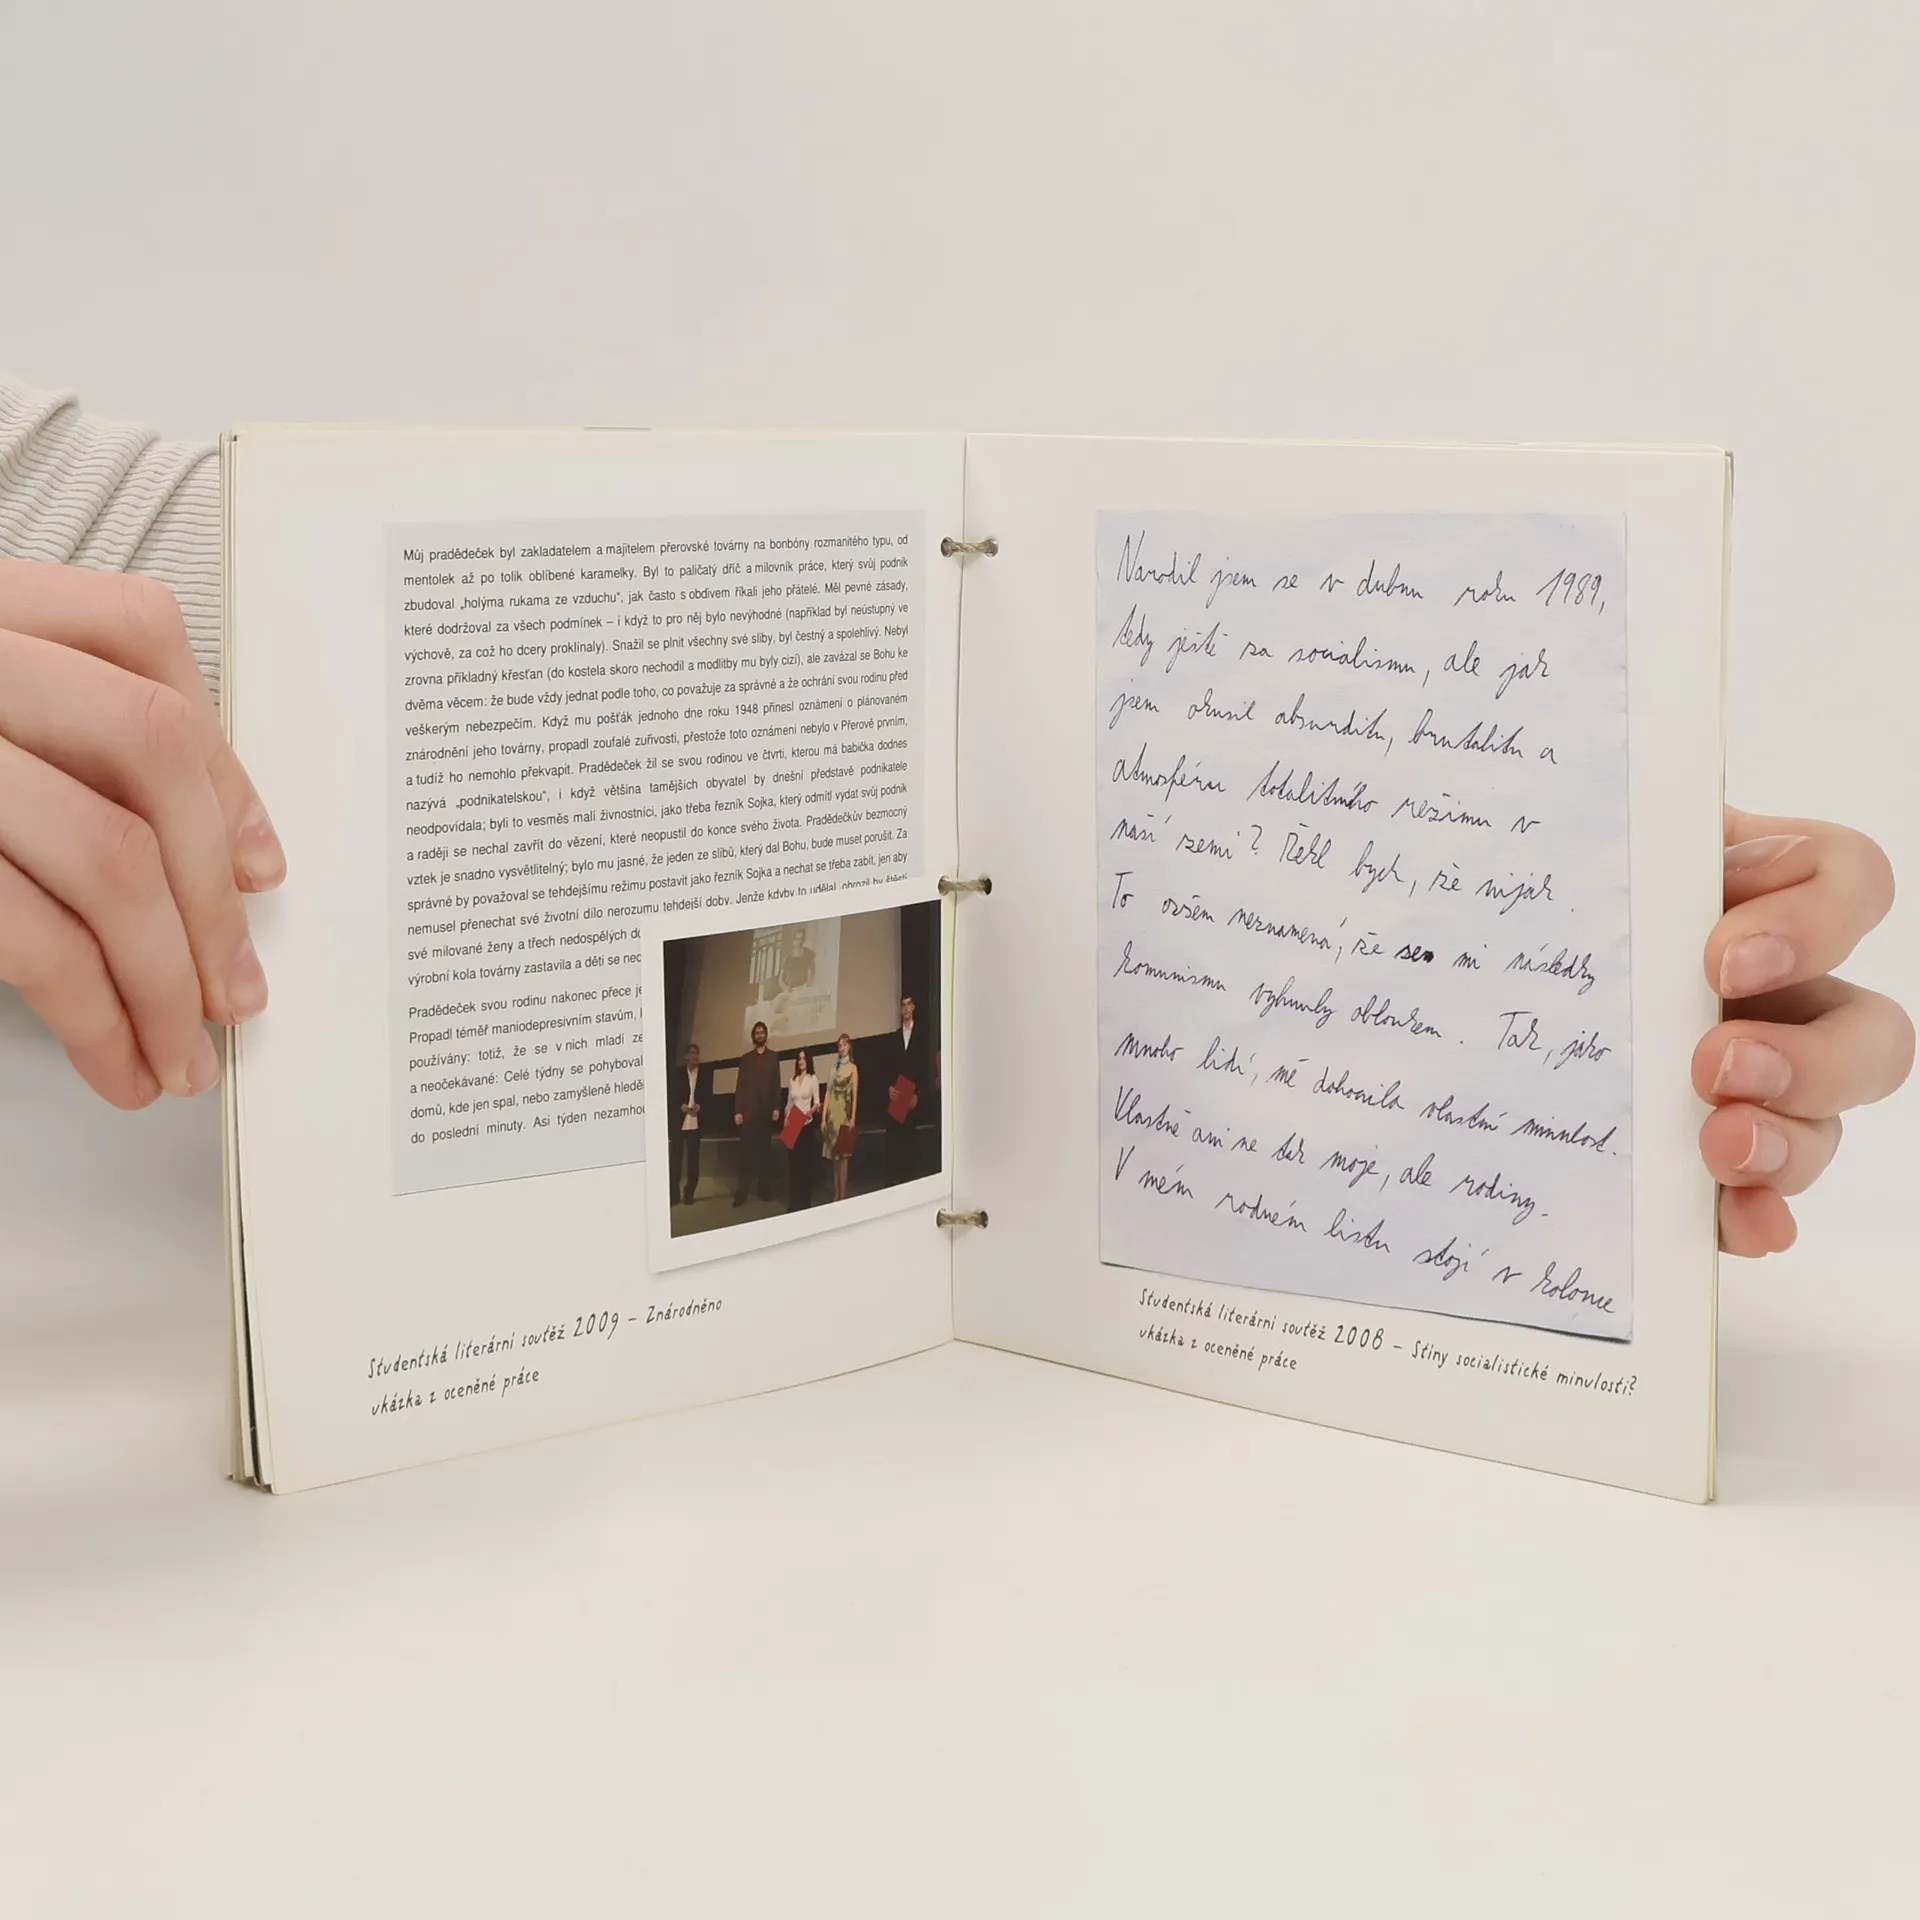 Můj pradědeček byl zakladatelem a majitelem přerovské továrny na bonbóny rozmanitého typu, od
mentolek až po tolik oblíbené karamelky. Byl to paličatý dříč a milovník práce, který svůj podnik
zbudoval „holýma rukama ze vzduchu“, jak často s obdivem říkali jeho přátelé. Měl pevné zásady,
které dodržoval za všech podmínek – i když to pro něj bylo nevýhodné (například byl neústupný ve
výchově, za což ho dcery proklínaly). Snažil se plnit všechny své sliby, byl čestný a spolehlivý. Nebyl
zrovna příkladný křesťan (do kostela skoro nechodil a modlitby mu byly cizí), ale zavázal se Bohu ke
dvěma věcem: že bude vždy jednat podle toho, co považuje za správné a že ochrání svou rodinu před
veškerým nebezpečím. Když mu pošťák jednoho dne roku 1948 přinesl oznámení o plánovaném
znárodnění jeho továrny, propadl zoufalé zuřivosti, přestože toto oznámení nebylo v Přerově prvním,
a tudíž ho nemohlo překvapit. Pradědeček žil se svou rodinou ve čtvrti, kterou má babička dodnes
nazývá „podnikatelskou“, i když většina tamějších obyvatel by dnešní představě podnikatele
neodpovídala; byli to vesměs malí živnostníci, jako třeba řezník Sojka, který odmítl vydat svůj podnik
a raději se nechal zavřít do vězení, které neopustil do konce svého života. Pradědečkův bezmocný
vztek je snadno vysvětlitelný; bylo mu jasné, že jeden ze slibů, který dal Bohu, bude muset porušit. Za
správné by považoval se tehdejšímu režimu postavit jako řezník Sojka a nechat se třeba zabít, jen aby
nemusel přenechat své životní dílo nerozumu tehdejší doby. Jenže kdyby to udělal, obrozil by štěstí
své milované ženy a třech nedospělých
výrobní kola továrny zastavila a děti se
Pradědeček svou rodinu nakonec přece
Propadl téměř maniodepresivním stavům,
používány: totiž, že se v nich mladí
a neočekávané: Celé týdny se pohyboval
domů, kde jen spal, nebo zamyšleně
do poslední minuty. Asi týden
Studentská literární soutěž 2009 – Znárodněno
ukázka z oceněné práce
Narodil jsem se v dubnu roku 1989,
tedy ještě za socialismu, ale jak
jsem okusil absurditu, brutalitu a
atmosféru totalitního režimu v
naší zemi? Řekl bych, že nijak.
To ovšem neznamená, že se mi následky
komunismu vyhnuly obloukem. Tak, jako
mnoho lidí, mě dohonila vlastní minulost.
Vlastně ani ne tak moje, ale rodiny.
V mém rodném listu stojí v kolonce
Studentská literární soutěž 2008 – Stíny socialistické minulosti?
ukázka z oceněné práce